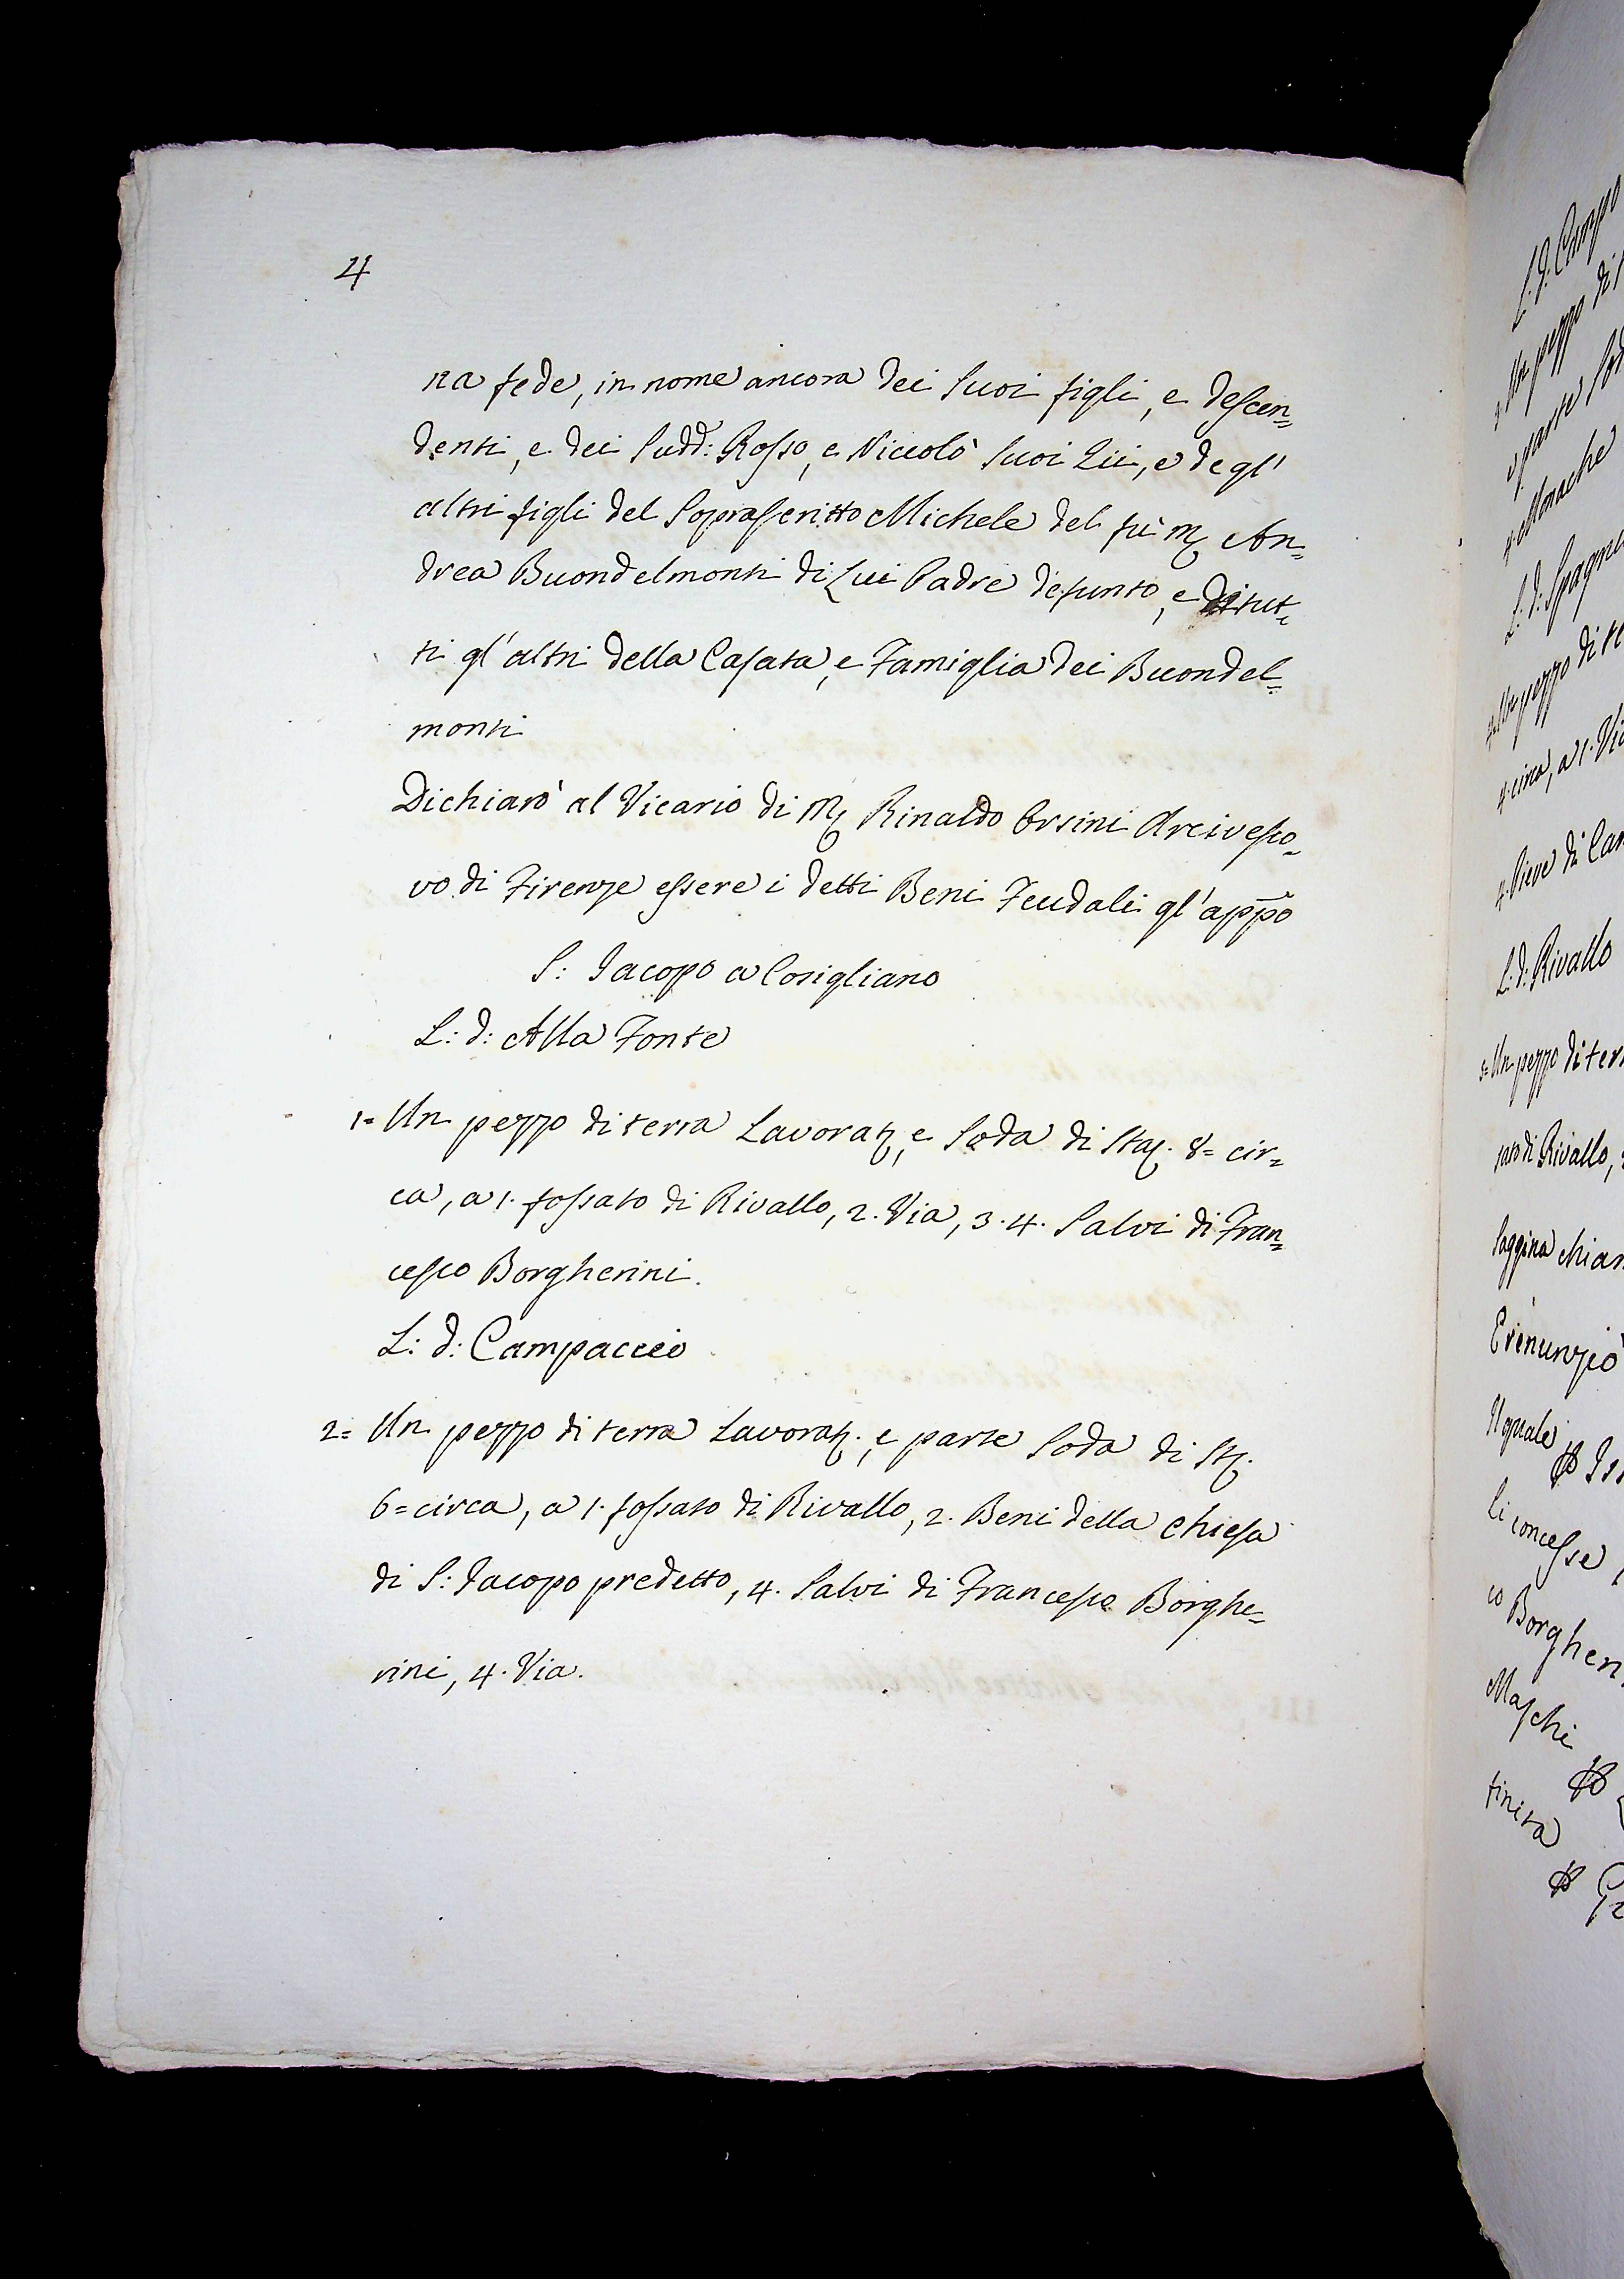 4
na fede, in nome ancora dei Suoi figli, e descen=
denti, e dei Sudd: Rosso, e Niccolò Suoi Zii, e degl'
altri figli del Soprascritto Michele del fù M. An=
drea Buondelmonti di Lui Padre defunto, e di tut=
ti gl'altri della Casata, e Famiglia dei Buondel=
monti
Dichiarò al Vicario di M. Rinaldo Orsini Arcivesco=
vo di Firenze essere i detti Beni Feudali gl'appo
S: Jacopo a Cosigliano
L: d: Alla Fonte
1= Un pezzo di terra Lavorat. e Soda di Stai. 8= cir=
ca, a 1. fossato di Rivallo, 2. Via, 3. 4. Salvi di Fran=
cesco Borgherini.
L: d: Campaccio
2= Un pezzo di terra Lavorat. e parte Soda di St.
6= circa, a 1. fossato di Rivallo, 2. Beni della Chiesa
di S: Jacopo predetto, 4. Salvi di Francesco Borghe=
rini, 4. Via.
L: d: Campo
Un pezzo di
e parte Sod
4. Monache
L: d: Spagn
Un pezzo di te
4. circa, a 1. Via
Pieve di Cam
L: d: Rivallo
5= Un pezzo di terr
sato di Rivallo,
Saggina chiar
E rinunziò
Il quale
li concesse
co Borgher
Maschi
finita